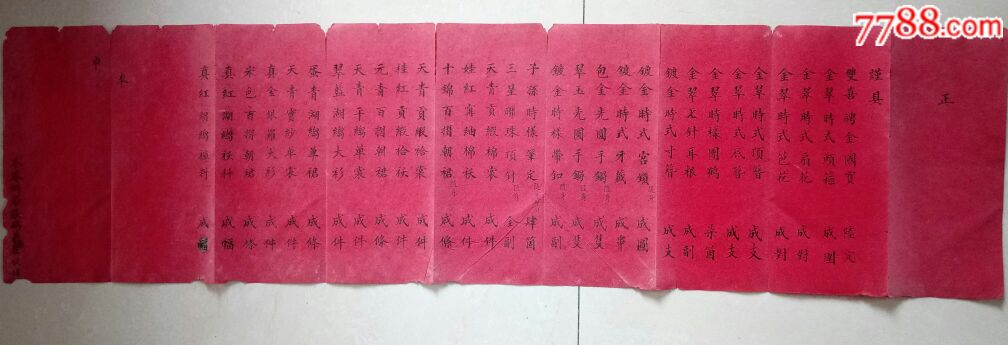 正
謹具
雙喜海金國寶 陸元
金翠時式頭箍 成圍
金翠時式扇花 成對
金翠時式芭花 成對
金翠時式頂簪 成支
金翠時式底簪 成支
金翠時樣圍鶴 柒箇
金翠七針耳根 成副
鍍金時式寸簪 成支
鍍金時式宮鎖 成圍
鍍金時式牙籤 成事
包金光圓手鐲 成雙
翠玉光圓手鐲 成雙
鍍金時樣帶釦 成副
子孫時樣筆定 肆箇
三星聯珠頂針 全副
天青貢緞棉褂 成件
娃紅寧紬棉襖 成件
十錦百摺朝裙 成條
天青貢緞袷裳 成件
桂紅貢緞袷袄 成件
元青百摺朝裙 成條
天青千縐單裳 成件
翠藍湖縐大衫 成件
蛋青湖縐單裙 成條
天青實紗單衣 成件
真金銀羅大衫 成件
米色百摺朝裙 成條
真紅湖縐袄料 成幅
真紅湖縐褲料 成幅
奉
申
7788.com